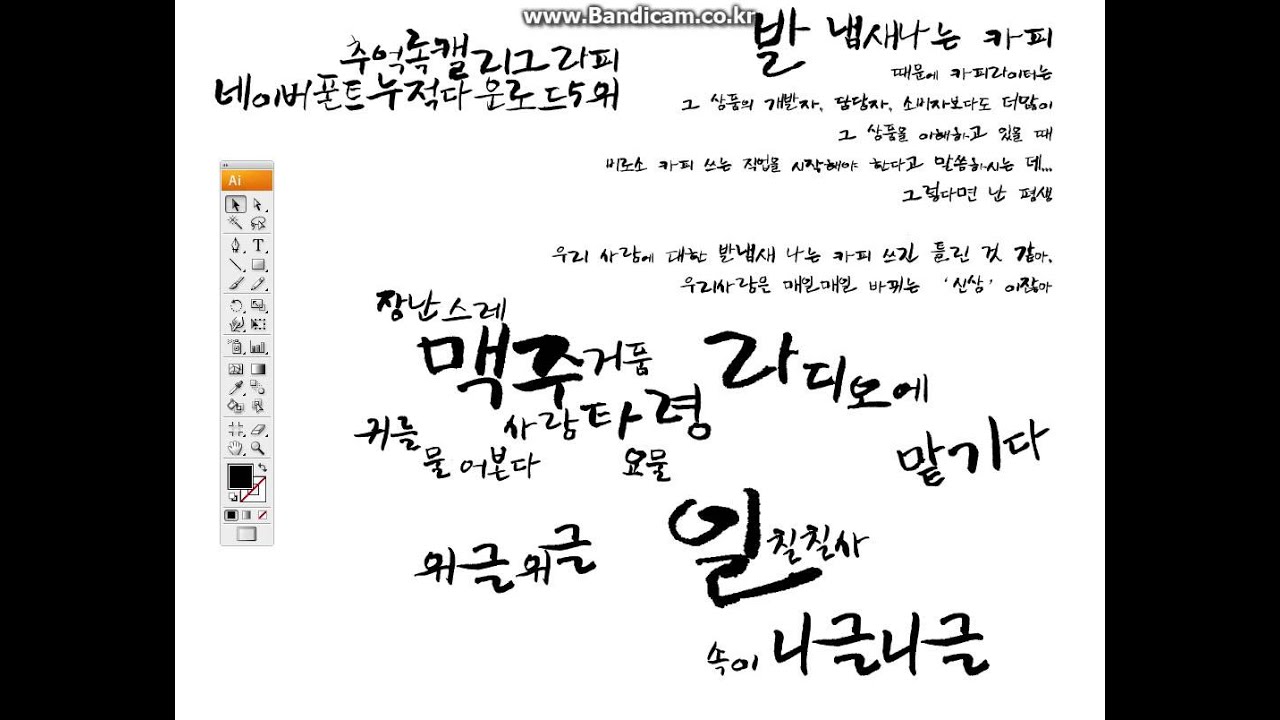 www.Bandicam.co.kr
추억록캘리그라피
네이버폰트누적다운로드5위
발 냄새나는 카피
때문에 카피라이터는
그 상품의 개발자, 담당자, 소비자보다도 더많이
그 상품을 이해하고 있을 때
비로소 카피 쓰는 직업을 시작해야 한다고 말씀하시는 데...
그렇다면 난 평생
우리 사랑에 대한 발냄새 나는 카피 쓰긴 틀린 것 같아.
우리사랑은 매일매일 바뀌는 '신상' 이잖아
Ai
T
장난스레
맥주거품
라디오에
사랑타령
귀를
물어본다
요물
맡기다
위글위글
일칠칠사
속이 니글니글